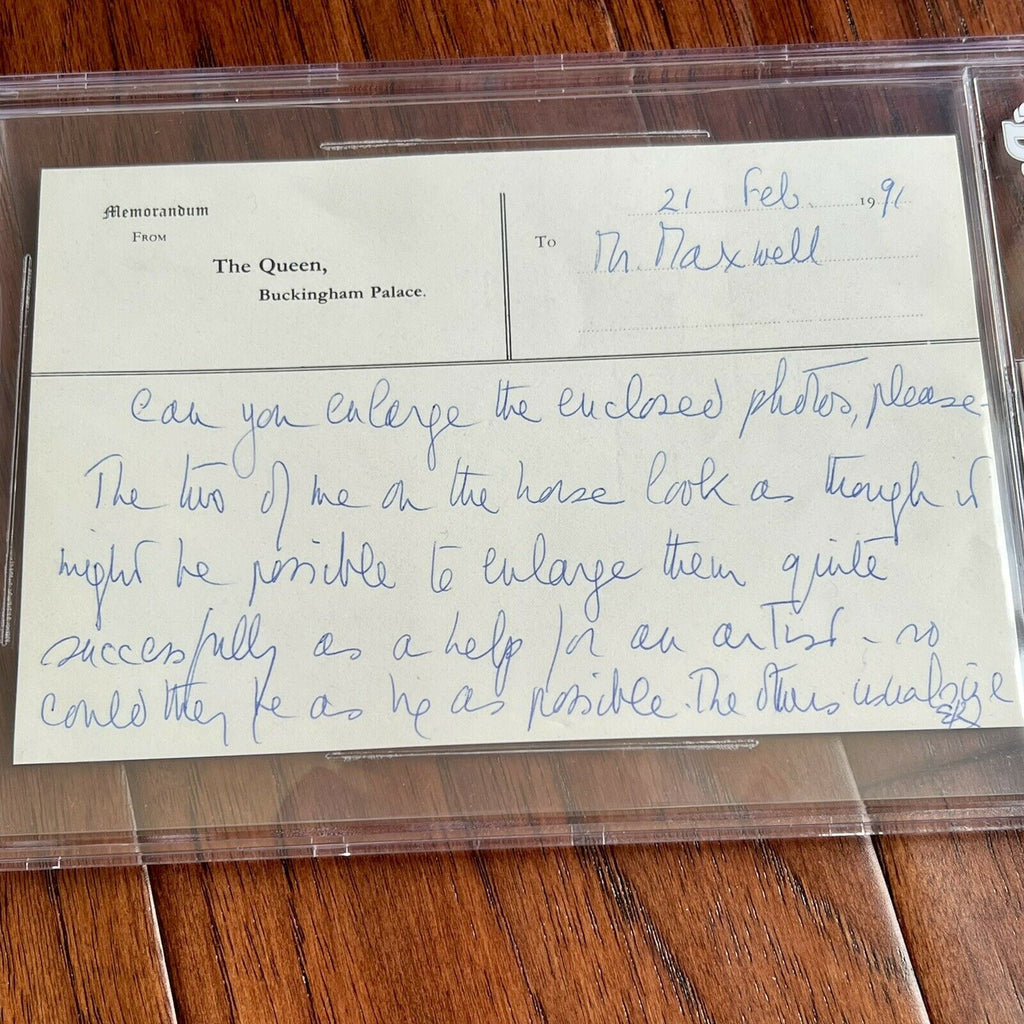 Memorandum
FROM
The Queen,
Buckingham Palace.
21 Feb 1991
To Mr. Maxwell
Can you enlarge the enclosed photos, please.
The two of me on the horse look as though it
might be possible to enlarge them quite
successfully as a help for an artist - so
could they be as big as possible. The others usual size
ER